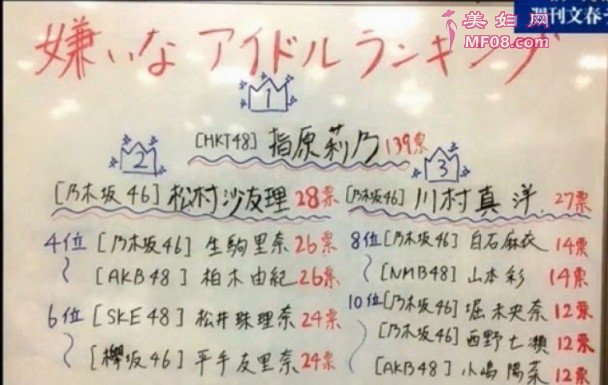 美妇网
MF08.com
週刊文春デ
嫌いなアイドルランキング
1
[HKT48] 指原莉乃 139票
2
[乃木坂46] 松村沙友理 28票
3
[乃木坂46] 川村真洋 27票
4位 [乃木坂46] 生駒里奈 26票
[AKB48] 柏木由紀 26票
6位 [SKE48] 松井珠理奈 24票
[欅坂46] 平手友里奈 24票
8位 [乃木坂46] 白石麻衣 14票
[NMB48] 山本彩 14票
10位 [乃木坂46] 堀未央奈 12票
[乃木坂46] 西野七瀬 12票
[AKB48] 小嶋陽菜 12票